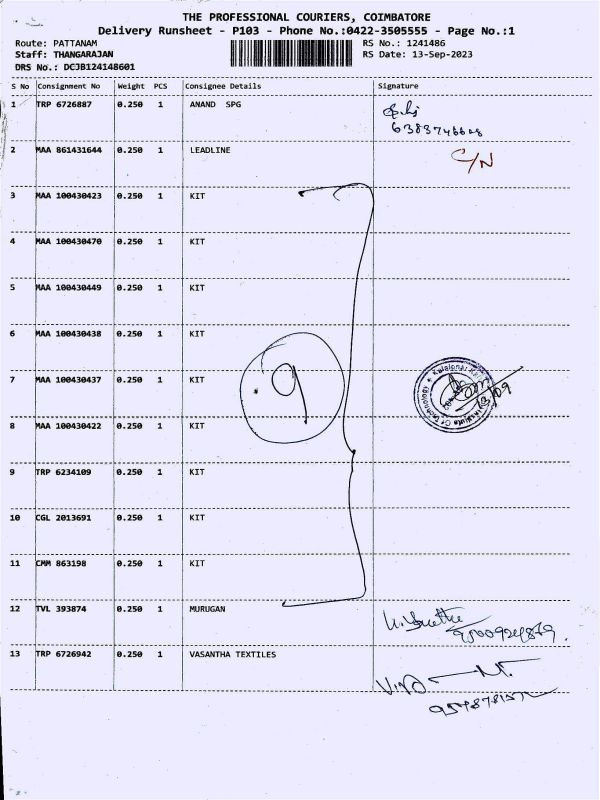 THE PROFESSIONAL COURIERS, COIMBATORE
Delivery Runsheet - P103 - Phone No.:0422-3505555 - Page No.:1
Route: PATTANAM RS No.: 1241486
Staff: THANGARAJAN RS Date: 13-Sep-2023
DRS No.: DCJB124148601
S No Consignment No Weight PCS Consignee Details Signature
1 TRP 6726887 0.250 1 ANAND SPG
2 MAA 861431644 0.250 1 LEADLINE C/N
3 MAA 100430423 0.250 1 KIT
4 MAA 100430470 0.250 1 KIT
5 MAA 100430449 0.250 1 KIT
6 MAA 100430438 0.250 1 KIT
7 MAA 100430437 0.250 1 KIT
9
8 MAA 100430422 0.250 1 KIT
9 TRP 6234109 0.250 1 KIT
10 CGL 2013691 0.250 1 KIT
11 CMM 863198 0.250 1 KIT
12 TVL 393874 0.250 1 MURUGAN
13 TRP 6726942 0.250 1 VASANTHA TEXTILES